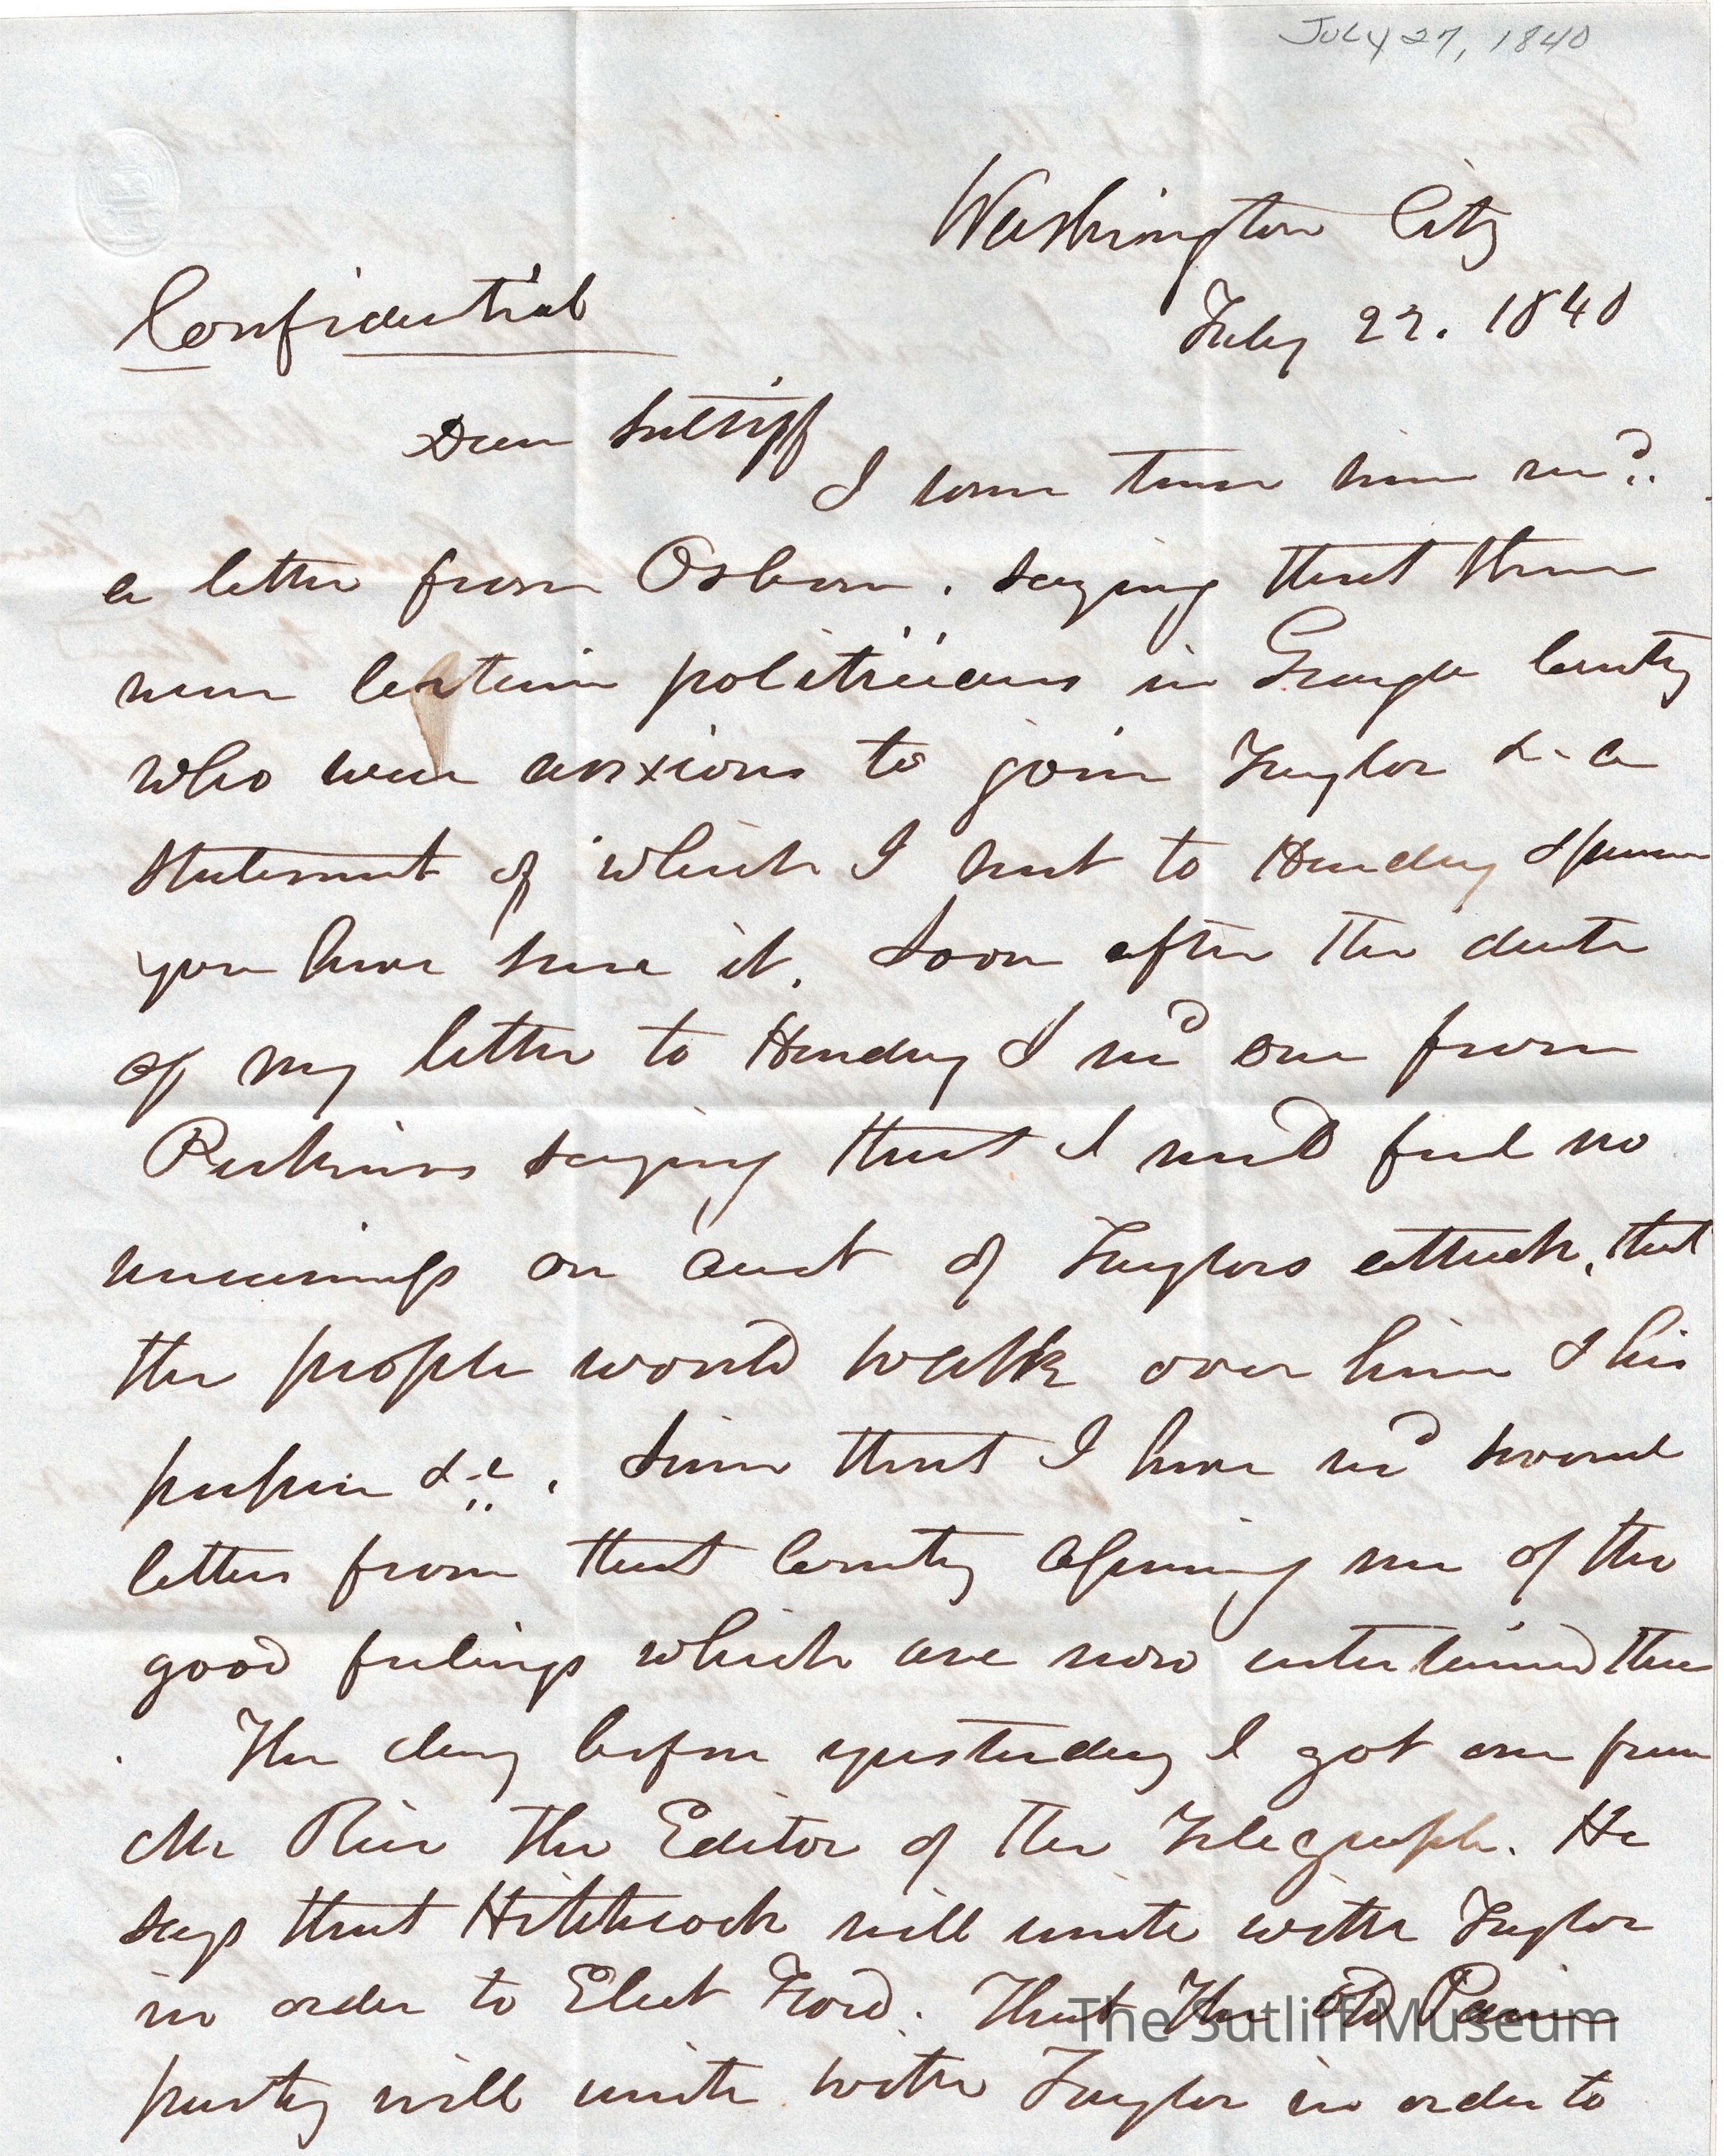 July 27, 1840
Washington City
July 27. 1840
Confidential
Dear Sutliff
I some time since recd.
a letter from Osborn. saying that there
were certain politicians in Geauga County
who were anxious to join Taylor &c a
statement of which I sent to Hendry & presume
you have seen it. Soon after the date
of my letter to Hendry I recd one from
Perkins saying that I need feel no
uneasiness on acct of Taylors attack, that
the people would walk over him & his
paper &c. Since that I have recd several
letters from that County assuring me of the
good feelings which are now entertained there
The day before yesterday I got one from
Mr Rice the Editor of the Telegraph. He
says that Hitchcock will unite with Taylor
in order to Elect Ford. That the old Paine
party will unite with Taylor in order to
The Sutliff Museum